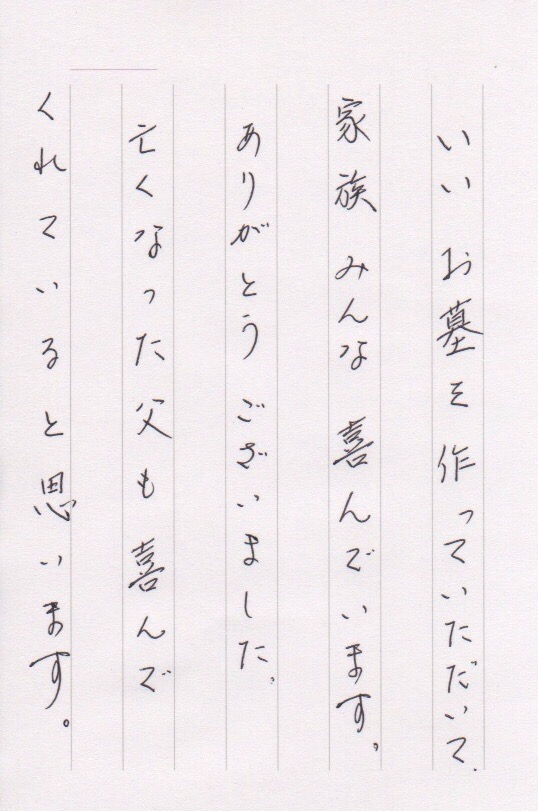 いいお墓を作っていただいて、
家族みんな喜んでいます。
ありがとうございました。
亡くなった父も喜んで
くれていると思います。